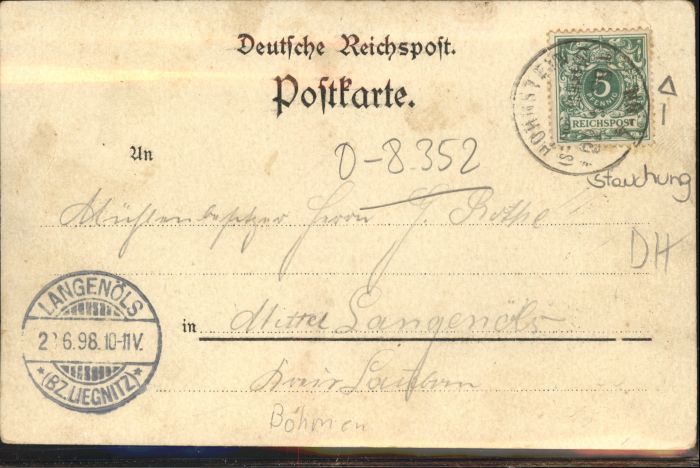 Deutsche Reichspost.
Postkarte.
5
PFENNIG
REICHSPOST
HOHNSTEIN
An
O-8.352
Stauchung
Mühlenbesitzer Herrn G. Rothe
DH
LANGENÖLS
2 6.98.10-11V.
*(BZ.LIEGNITZ)*
in Mittel Langenöls
Kreis Lauban
Böhmen